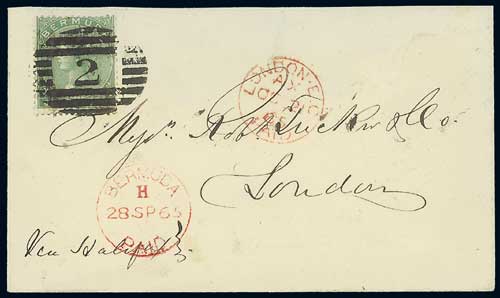 BERMUDA
2
LONDON·E
PAID
Messrs. Robt. Tucker & Co.
London
BERMUDA
H
28 SP 65
PAID
Via Halifax